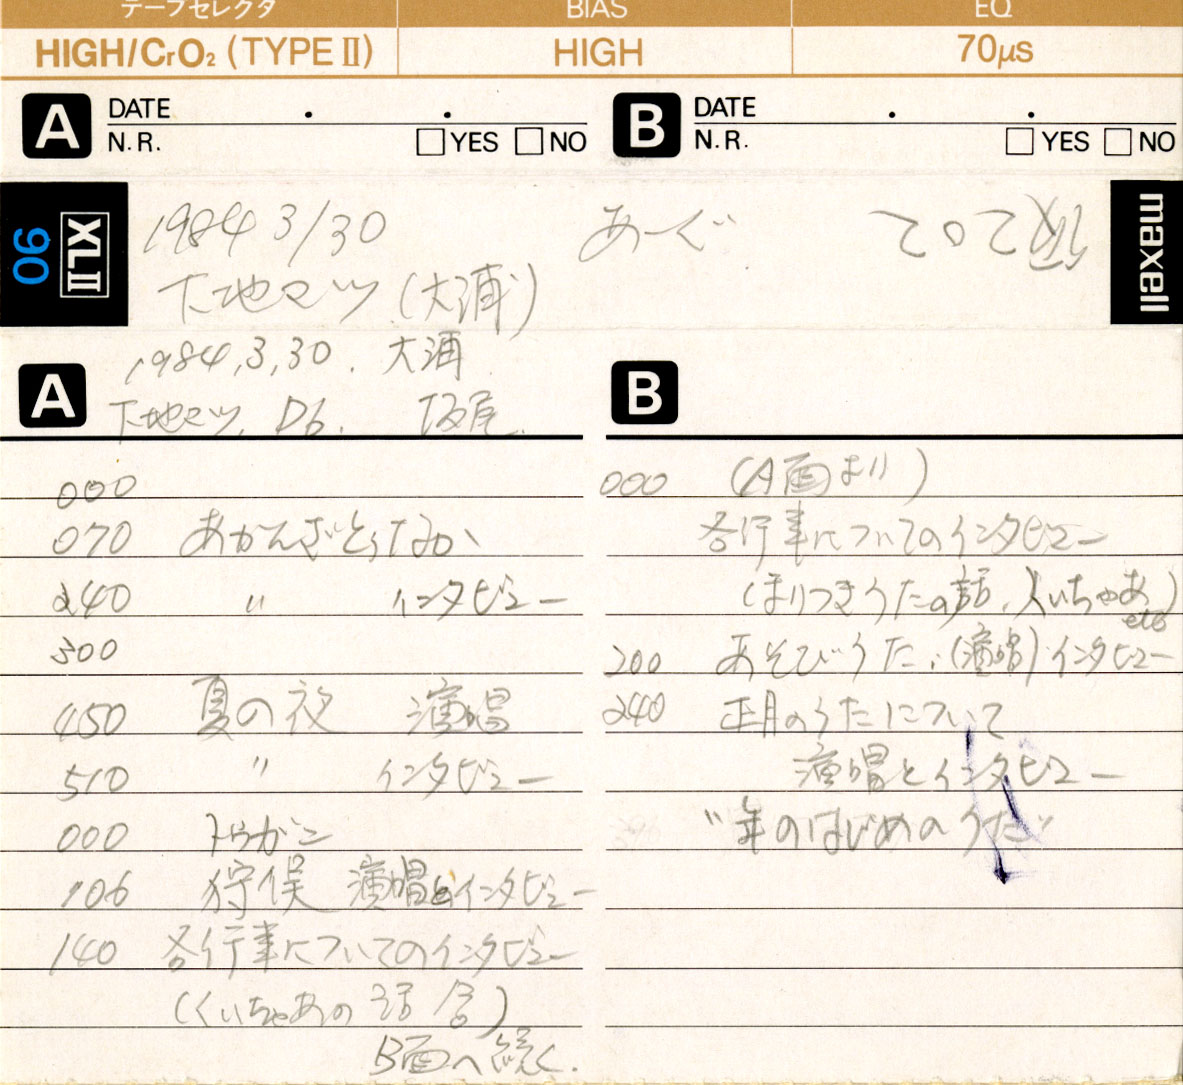 テープセレクタ BIAS EQ
HIGH/CrO₂ (TYPE II) HIGH 70μs
A DATE . .
N.R. YES NO
B DATE . .
N.R. YES NO
XLII 90
maxell
1984 3/30 あーぐ
下地マツ (大浦)
A 1984,3,30. 大浦
下地マツ, D6.
B
000
070 あかんざとぅなか
240 〃 インタビュー
300
450 夏の夜 演唱
510 〃 インタビュー
000 トゥガニ
106 狩俣 演唱とインタビュー
140 各行事についてのインタビュー
(くいちゃあの話 含)
B面へ続く.
000 (A面より)
各行事についてのインタビュー
(まりつきうたの話, くいちゃあ) etc
200 あそびうた, (演唱) インタビュー
240 正月のうたについて
演唱とインタビュー
"年のはじめのうた"